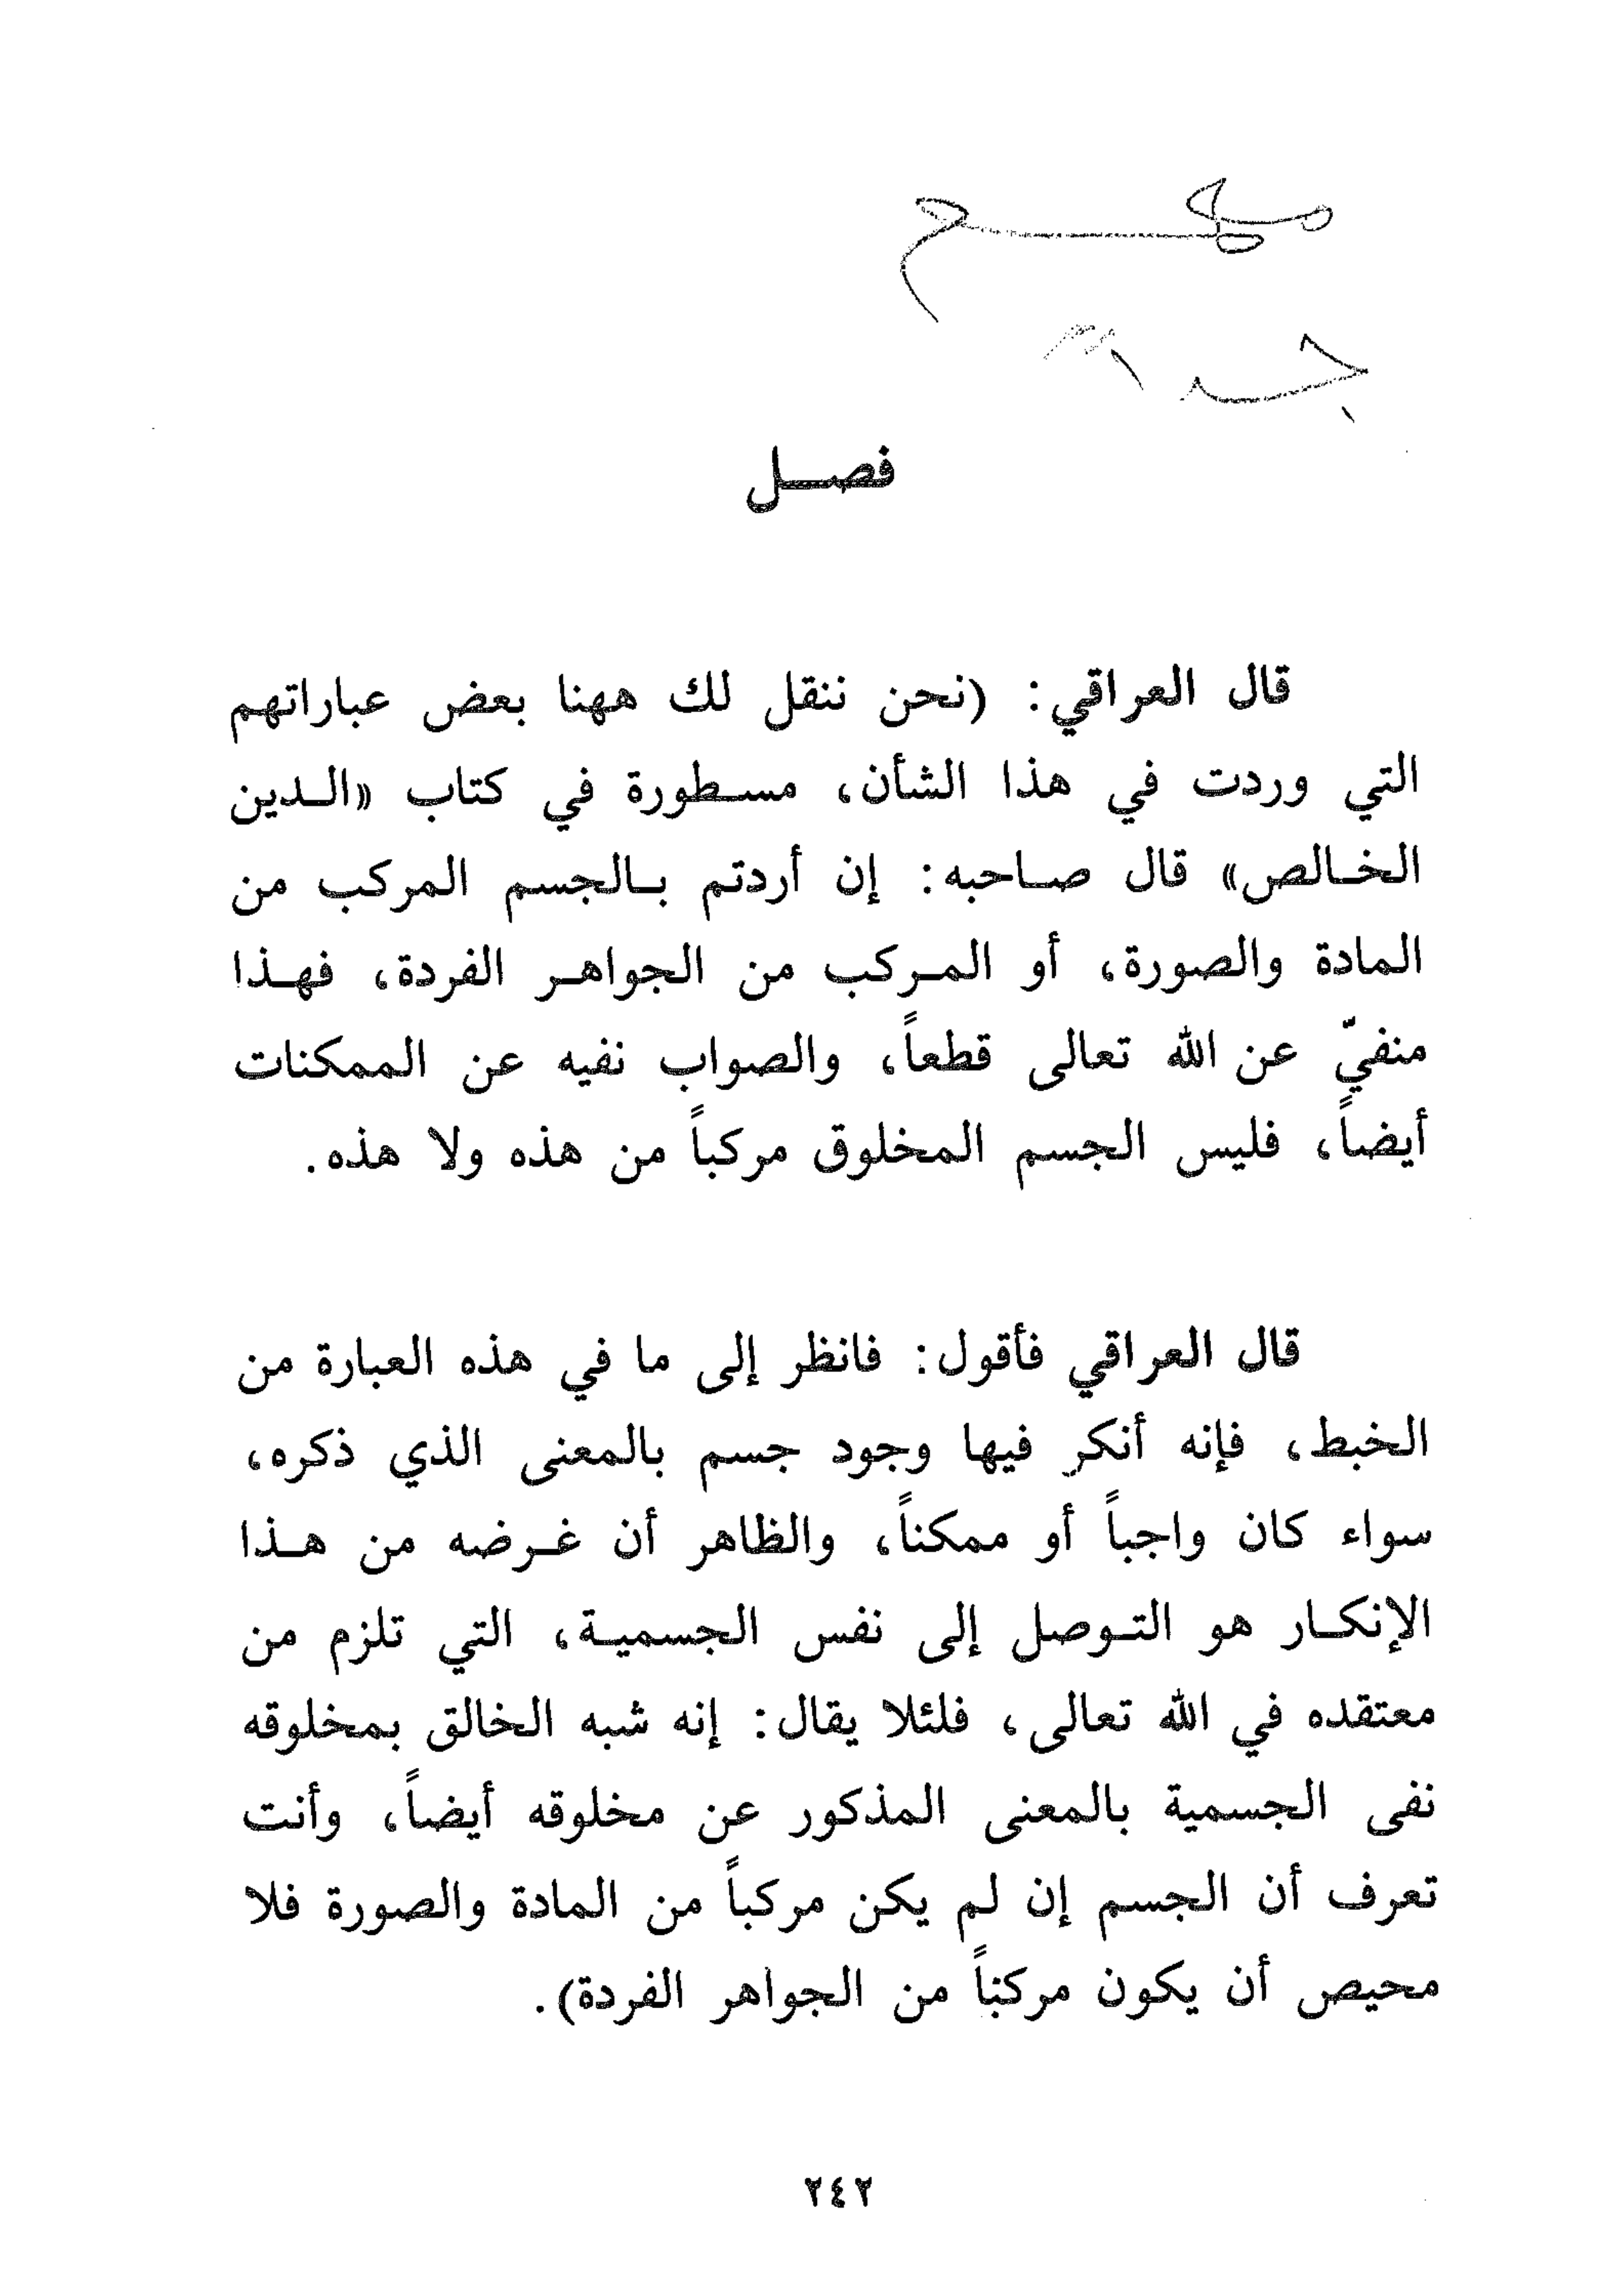 مهم جداً
فصل
قال العراقي: (نحن ننقل لك ههنا بعض عباراتهم
التي وردت في هذا الشأن، مسطورة في كتاب «الدين
الخالص» قال صاحبه: إن أردتم بالجسم المركب من
المادة والصورة، أو المركب من الجواهر الفردة، فهذا
منفيّ عن الله تعالى قطعاً، والصواب نفيه عن الممكنات
أيضاً، فليس الجسم المخلوق مركباً من هذه ولا هذه.
قال العراقي فأقول: فانظر إلى ما في هذه العبارة من
الخبط، فإنه أنكر فيها وجود جسم بالمعنى الذي ذكره،
سواء كان واجباً أو ممكناً، والظاهر أن غرضه من هذا
الإنكار هو التوصل إلى نفس الجسمية، التي تلزم من
معتقده في الله تعالى، فلئلا يقال: إنه شبه الخالق بمخلوقه
نفى الجسمية بالمعنى المذكور عن مخلوقه أيضاً، وأنت
تعرف أن الجسم إن لم يكن مركباً من المادة والصورة فلا
محيص أن يكون مركباً من الجواهر الفردة).
٢٤٢